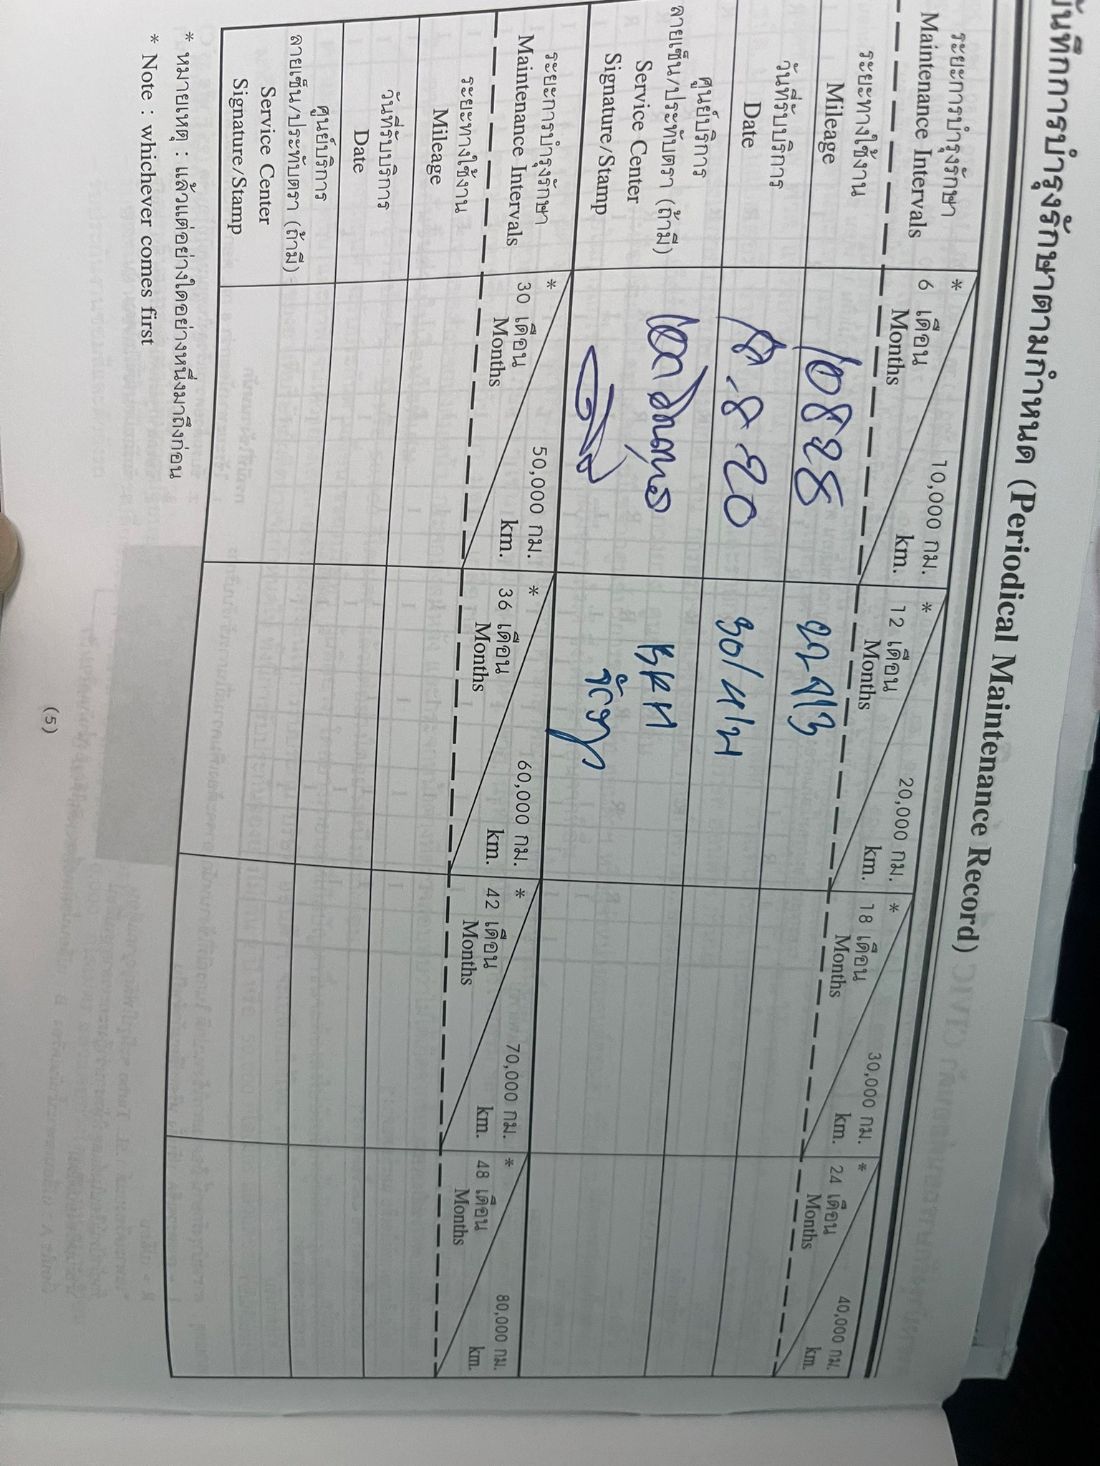 บันทึกการบำรุงรักษาตามกำหนด (Periodical Maintenance Record)
ระยะการบำรุงรักษา
Maintenance Intervals
* 6 เดือน Months 10,000 กม. km.
* 12 เดือน Months 20,000 กม. km.
* 18 เดือน Months 30,000 กม. km.
* 24 เดือน Months 40,000 กม. km.
ระยะทางใช้งาน
Mileage
10828
วันที่รับบริการ
Date
ศูนย์บริการ
ลายเซ็น/ประทับตรา (ถ้ามี)
Service Center
Signature/Stamp
ระยะการบำรุงรักษา
Maintenance Intervals
* 30 เดือน Months 50,000 กม. km.
* 36 เดือน Months 60,000 กม. km.
* 42 เดือน Months 70,000 กม. km.
* 48 เดือน Months 80,000 กม. km.
ระยะทางใช้งาน
Mileage
วันที่รับบริการ
Date
ศูนย์บริการ
ลายเซ็น/ประทับตรา (ถ้ามี)
Service Center
Signature/Stamp
* หมายเหตุ : แล้วแต่อย่างใดอย่างหนึ่งมาถึงก่อน
* Note : whichever comes first
(5)